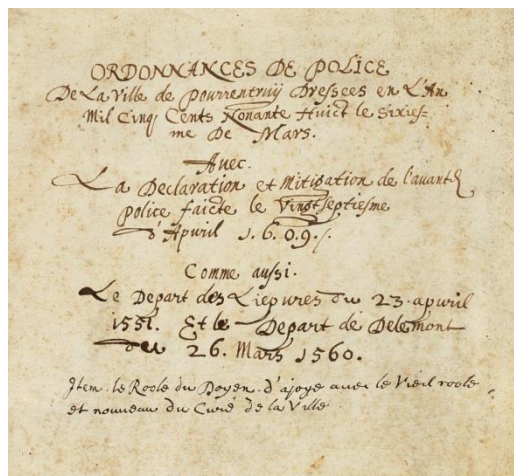 ORDONNANCES DE POLICE
De La Ville de Pourrentruÿ Dressees en L'An
Mil Cinq Cents Nonante Huict le Sixies=
me De Mars.
Avec.
La Declaration et Mitigation de l'avantd
Police faicte le Vingtseptiesme
d'Apvril 1.6.0.9./.
Comme aussi.
Le Depart des Liepvres du 23. apvril
1551. Et le Depart de Delemont
du 26. Mars 1560.
Item. le Roole du Doyen. d'ajoye avec le Vieil roole
et nouveau du Curé de la Ville.